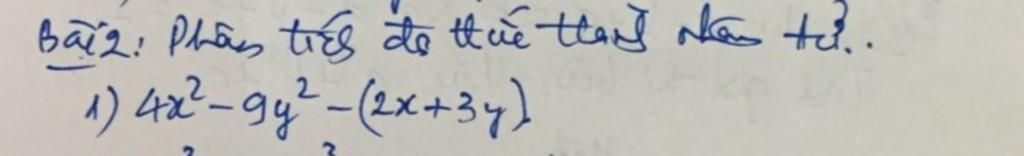 Bài 2: Phân tích đa thức thành nhân tử.
1) 4x² - 9y² - (2x + 3y)